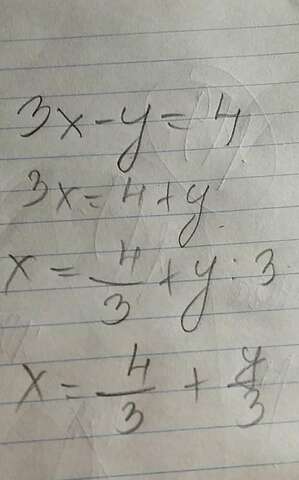 3x - y = 4
3x = 4 + y
x = 4/3 + y : 3
x = 4/3 + y/3